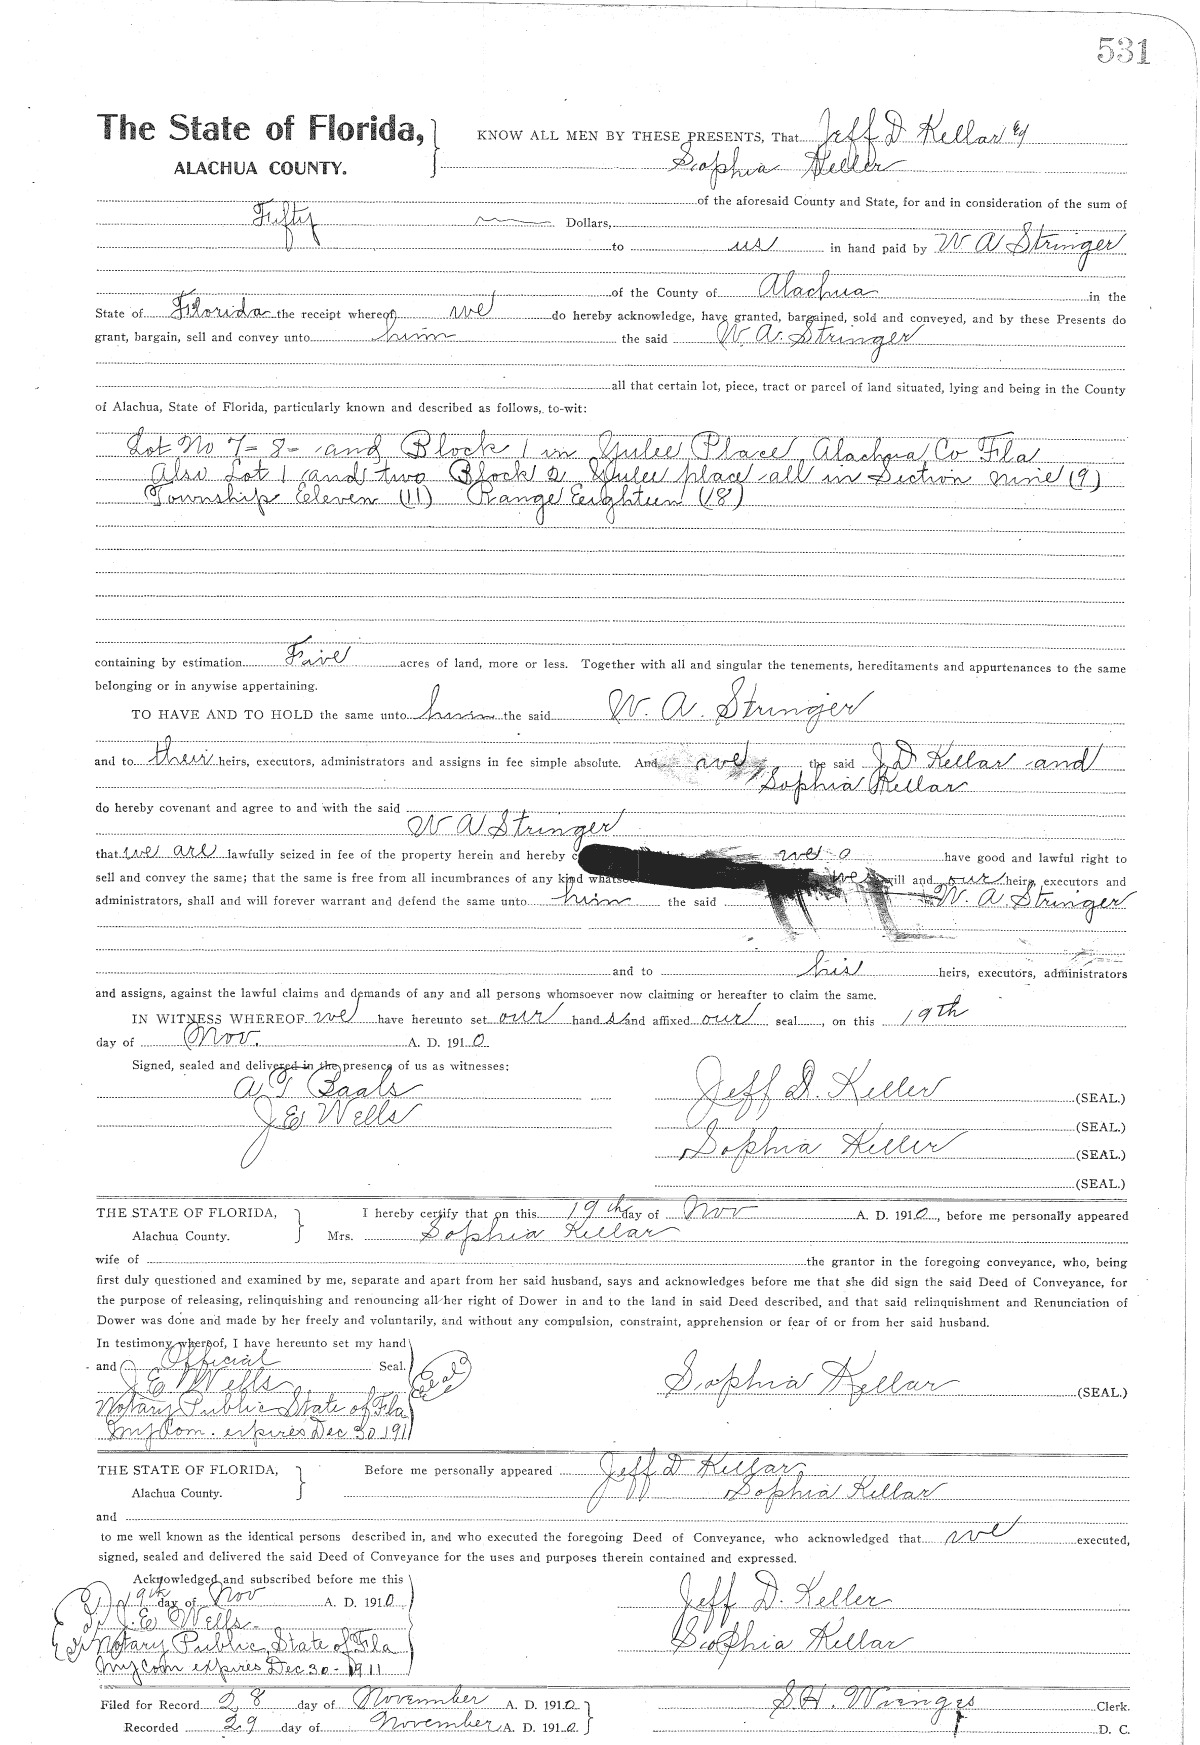 531
The State of Florida,
ALACHUA COUNTY.
KNOW ALL MEN BY THESE PRESENTS, That Jeff D Kellar &
Sophia Keller
of the aforesaid County and State, for and in consideration of the sum of
Fifty Dollars,
to us in hand paid by W A Stringer
of the County of Alachua in the
State of Florida the receipt whereof we do hereby acknowledge, have granted, bargained, sold and conveyed, and by these Presents do
grant, bargain, sell and convey unto him the said W. A. Stringer
all that certain lot, piece, tract or parcel of land situated, lying and being in the County
of Alachua, State of Florida, particularly known and described as follows, to-wit:
Lot No 7- 8- and Block 1 in Yulee Place Alachua Co Fla
Also Lot 1 and two Block 2 Yulee place all in Section nine (9)
Township Eleven (11) Range Eeighteen (18)
containing by estimation Five acres of land, more or less. Together with all and singular the tenements, hereditaments and appurtenances to the same
belonging or in anywise appertaining.
TO HAVE AND TO HOLD the same unto him the said W. A. Stringer
and to their heirs, executors, administrators and assigns in fee simple absolute. And we the said J. D Kellar and
Sophia Kellar
do hereby covenant and agree to and with the said
W A Stringer
that we are lawfully seized in fee of the property herein and hereby we have good and lawful right to
sell and convey the same; that the same is free from all incumbrances of any kind we will and our heirs, executors and
administrators, shall and will forever warrant and defend the same unto him the said W. A. Stringer
and to his heirs, executors, administrators
and assigns, against the lawful claims and demands of any and all persons whomsoever now claiming or hereafter to claim the same.
IN WITNESS WHEREOF we have hereunto set our hand s and affixed our seal, on this 19th
day of Nov. A. D. 1910
Signed, sealed and delivered in the presence of us as witnesses:
J E Wells
Jeff D. Keller (SEAL.)
(SEAL.)
Sophia Keller (SEAL.)
(SEAL.)
THE STATE OF FLORIDA,
Alachua County.
I hereby certify that on this 19th day of Nov A. D. 1910, before me personally appeared
Mrs. Sophia Kellar
wife of the grantor in the foregoing conveyance, who, being
first duly questioned and examined by me, separate and apart from her said husband, says and acknowledges before me that she did sign the said Deed of Conveyance, for
the purpose of releasing, relinquishing and renouncing all her right of Dower in and to the land in said Deed described, and that said relinquishment and Renunciation of
Dower was done and made by her freely and voluntarily, and without any compulsion, constraint, apprehension or fear of or from her said husband.
In testimony whereof, I have hereunto set my hand
and Official Seal.
J E Wells
Notary Public State of Fla
My Com. expires Dec 30 1911
Seal
Sophia Kellar (SEAL.)
THE STATE OF FLORIDA,
Alachua County.
Before me personally appeared Jeff D Kellar
Sophia Kellar
and
to me well known as the identical persons described in, and who executed the foregoing Deed of Conveyance, who acknowledged that we executed,
signed, sealed and delivered the said Deed of Conveyance for the uses and purposes therein contained and expressed.
Acknowledged and subscribed before me this
19th day of Nov A. D. 1910
J. E Wells
Notary Public State of Fla
My Com expires Dec 30- 1911
Jeff D. Keller
Sophia Kellar
Filed for Record 28 day of November A. D. 1910
Recorded 29 day of November A. D. 1910
S. H. Wienges Clerk.
D. C.